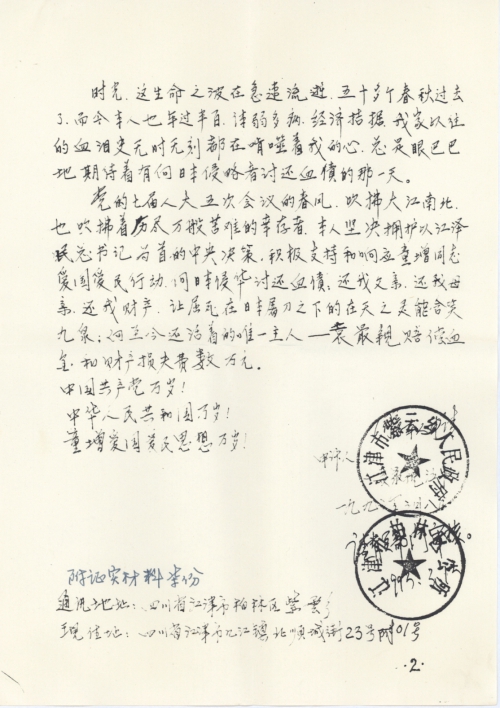 时光，这生命之波在急速流逝，五十多个春秋过去
了，而今本人也年过半百，体弱多病，经济拮据，我家以往
的血泪史无时无刻都在啃噬着我的心，总是眼巴巴
地期待着有向日本侵略者讨还血债的那一天。
党的七届人大五次会议的春风，吹拂大江南北，
也吹拂着历尽万般苦难的幸存者，本人坚决拥护以江泽
民总书记为首的中央决策，积极支持和响应童增同志
爱国爱民行动，向日本侵华讨还血债：还我父亲，还我母
亲，还我财产，让屈死在日本屠刀之下的在天之灵能含笑
九泉；向至今还活着的唯一主人——袁最親赔偿血
金，和财产损失费数万元。
中国共产党万岁！
中华人民共和国万岁！
童增爱国爱民思想万岁！
申诉人
江津市紫云乡人民政府
一九九
江津
附证实材料壹份
通讯地址：四川省江津市柏林区紫云乡
现住址：四川省江津市几江镇北顺城街23号附01号
·2·